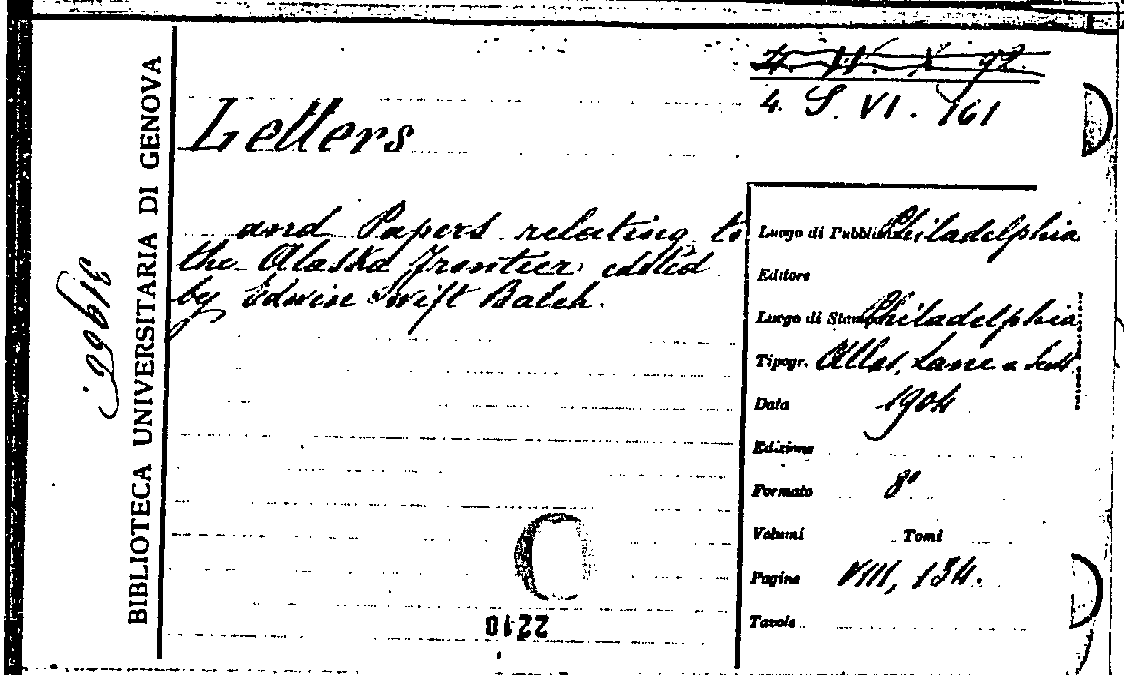 4. S. VI. 161
Letters
and Papers relating to
the Alaska Frontier edited
by Edwin Swift Balch.
BIBLIOTECA UNIVERSITARIA DI GENOVA
31966
Luogo di Pubblicaz. Philadelphia
Editore
Luogo di Stampa Philadelphia
Tipogr. Allen, Lane a Scott
Data 1904
Edizione
Formato 8°
Volumi Tomi
Pagine VIII, 134.
Tavole
2210